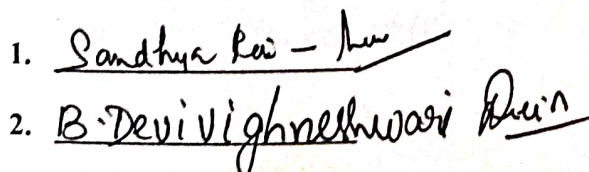 1. Sandhya Rai -
2. B. Devi Vighneshwari